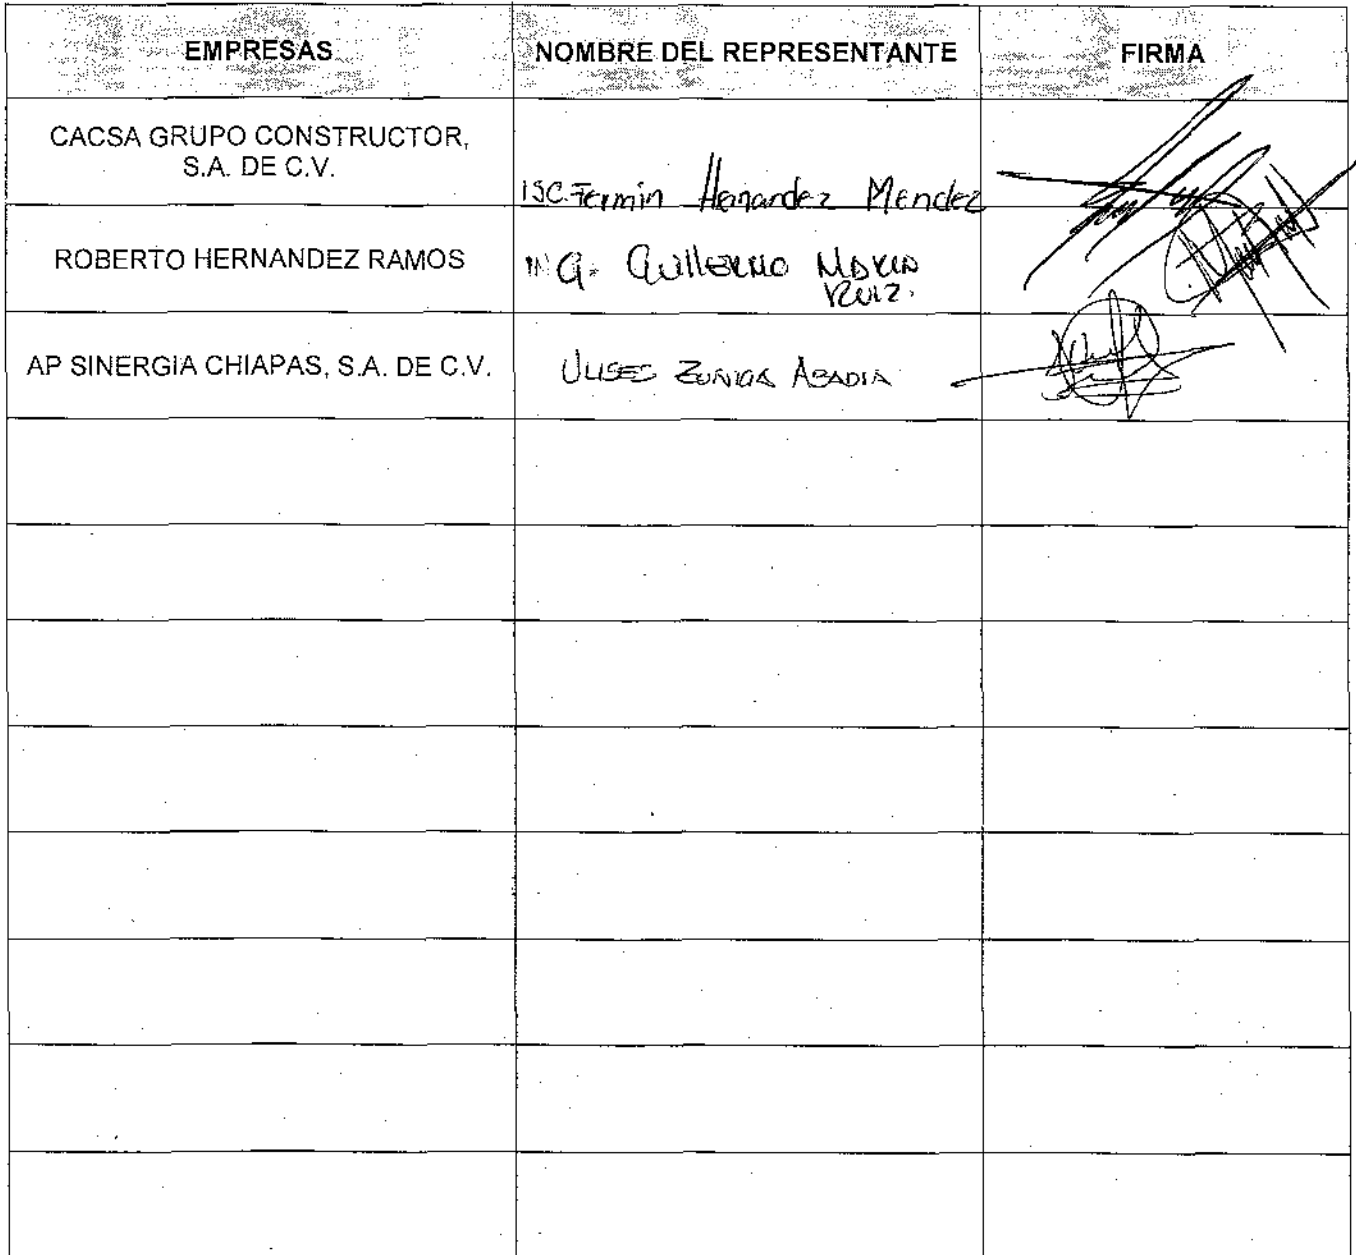 EMPRESAS
NOMBRE DEL REPRESENTANTE
FIRMA
CACSA GRUPO CONSTRUCTOR,
S.A. DE C.V.
ISC. Fermin Hernandez Mendez
ROBERTO HERNANDEZ RAMOS
ING. Guillermo
Ruiz.
AP SINERGIA CHIAPAS, S.A. DE C.V.
Ulises Zuñiga Abadia